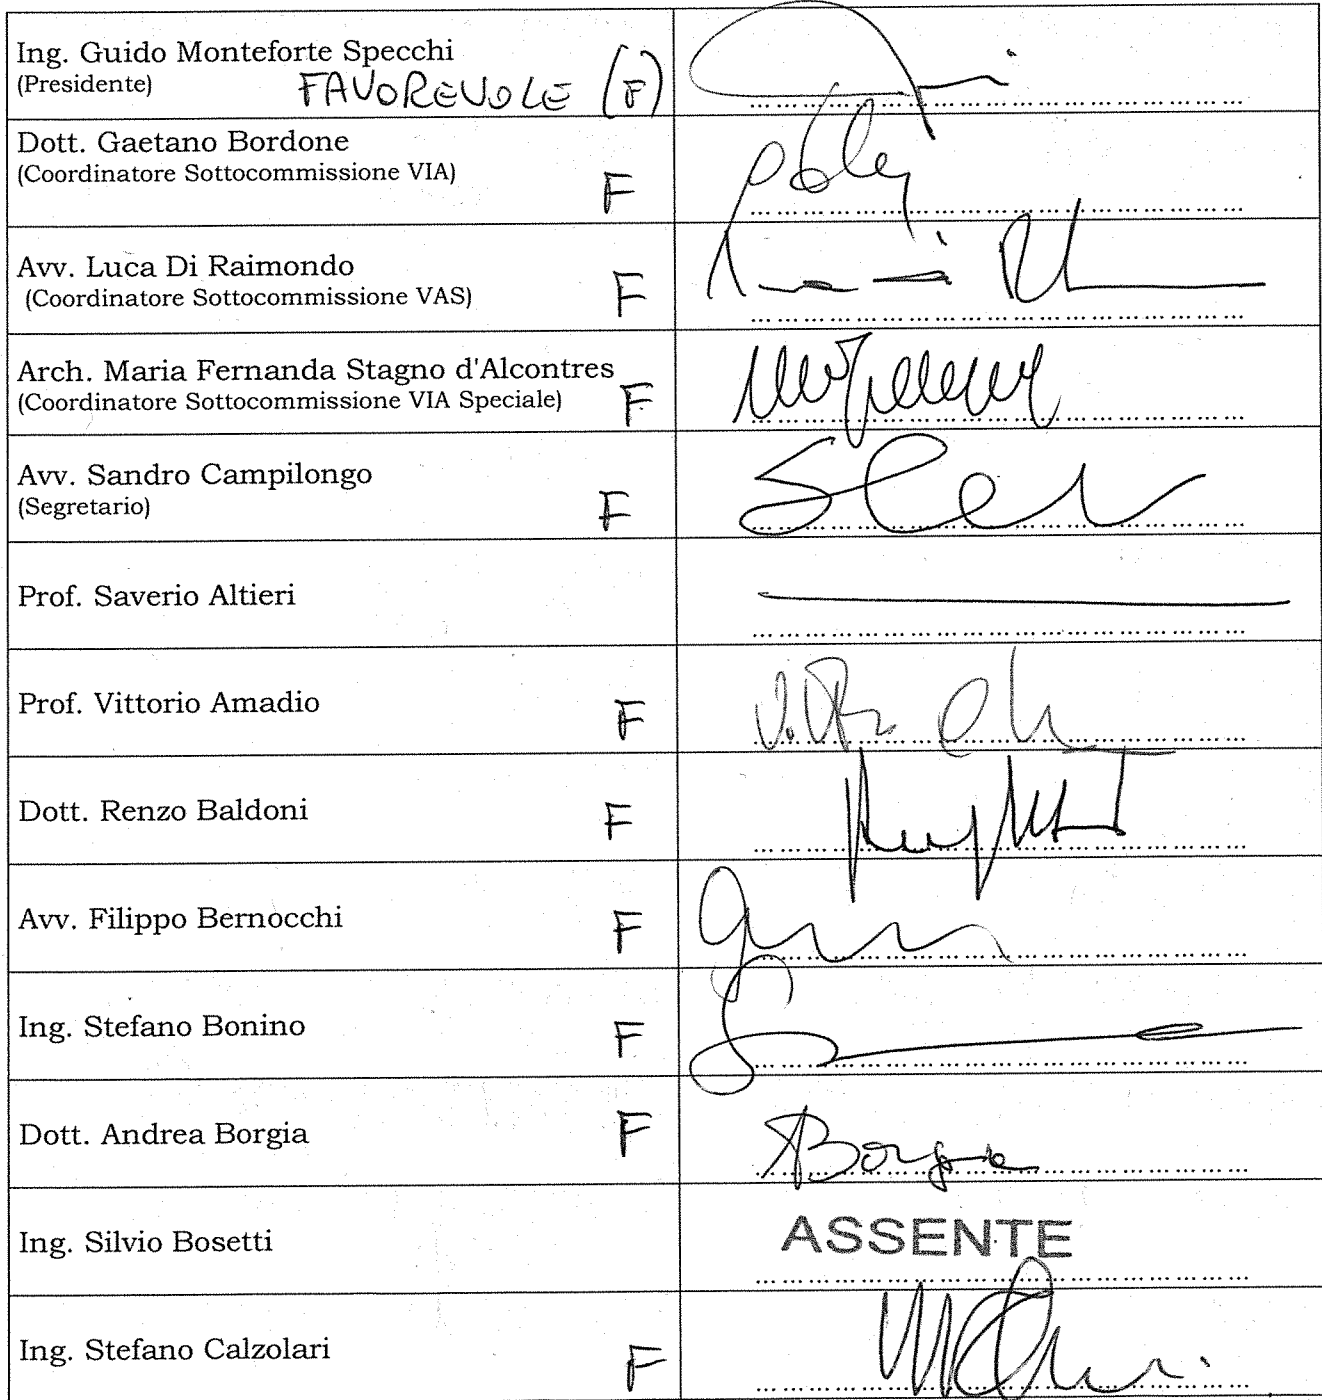 Ing. Guido Monteforte Specchi
(Presidente) FAVOREVOLE (F)
Dott. Gaetano Bordone
(Coordinatore Sottocommissione VIA)
F
Avv. Luca Di Raimondo
(Coordinatore Sottocommissione VAS) F
Arch. Maria Fernanda Stagno d'Alcontres
(Coordinatore Sottocommissione VIA Speciale) F
Avv. Sandro Campilongo
(Segretario) F
Prof. Saverio Altieri
Prof. Vittorio Amadio F
Dott. Renzo Baldoni F
Avv. Filippo Bernocchi F
Ing. Stefano Bonino F
Dott. Andrea Borgia F ABorgia
Ing. Silvio Bosetti ASSENTE
Ing. Stefano Calzolari F